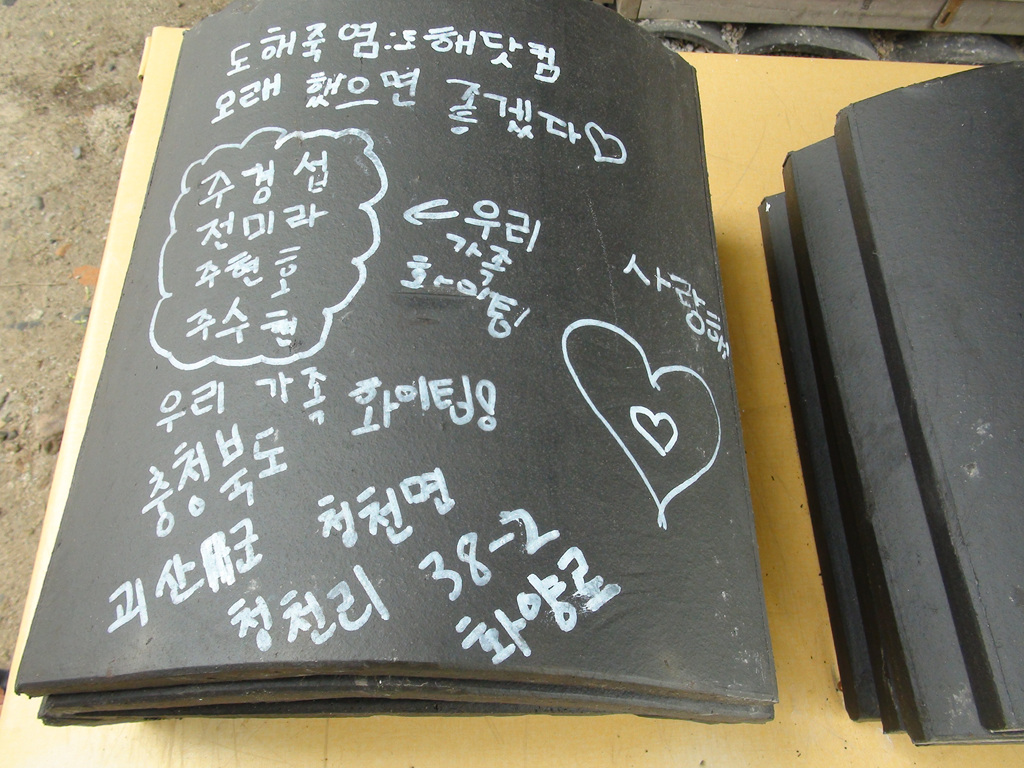 도해죽염:도해닷컴
오래 했으면 좋겠다
주경섭
전미라
주현호
주수현
우리
가족
화이팅
사랑해
우리 가족 화이팅!
충청북도
괴산군 청천면
청천리 38-2
화양로